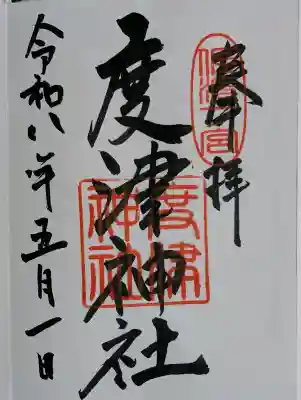 奉拝
佐渡一宮
度津神社
度津神社
令和八年五月一日